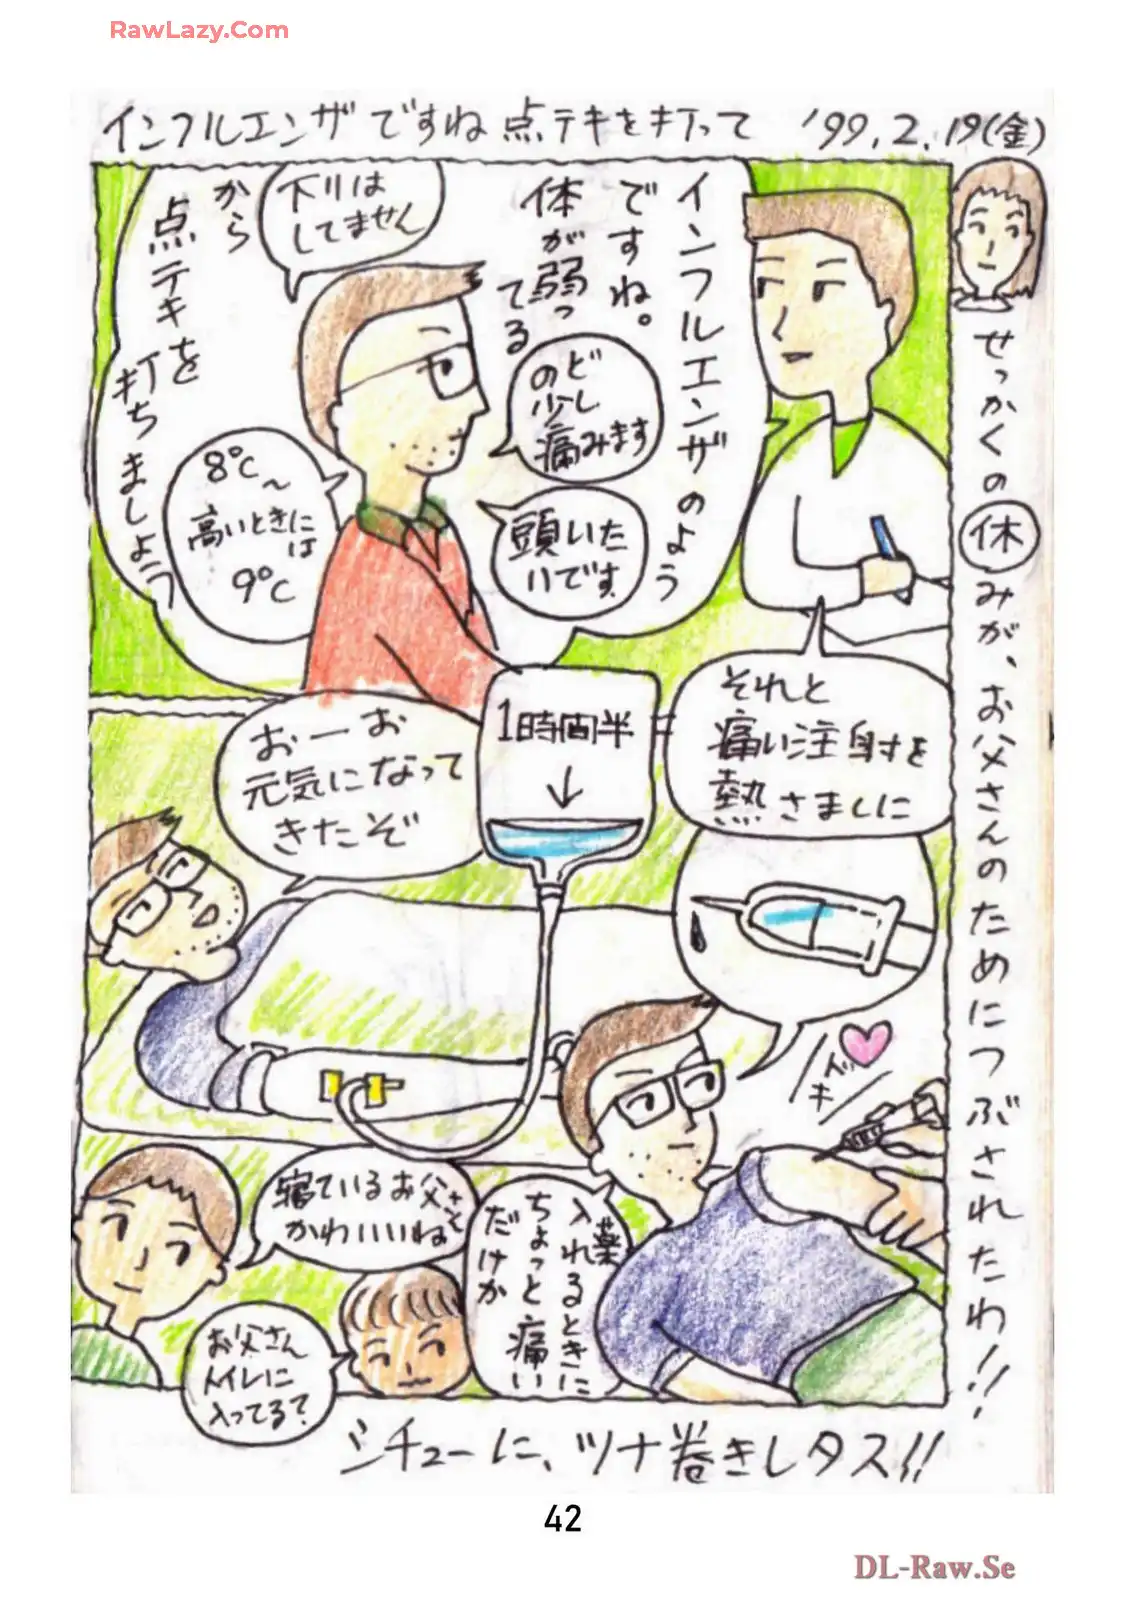 RawLazy.Com
インフルエンザですね点テキを打って '99.2.19(金)
インフルエンザのよう
ですね。
体が弱っ
てる
から
点テキを
打ちましょう
下リは
してません
のど
少し
痛みます
頭いた
いです
8℃〜
高いときに
は
9℃
それと
痛い注射を
熱さましに
1時間半
↓
おーお
元気になって
きたぞ
ドキッ
薬
入れるときに
ちょっと痛い
だけか
寝ているお父さん
かわいいね
お父さん
トイレに
入ってる?
せっかくの休みが、お父さんのためにつぶされたわ!!
シチューに、ツナ巻きレタス!!
42
DL-Raw.Se